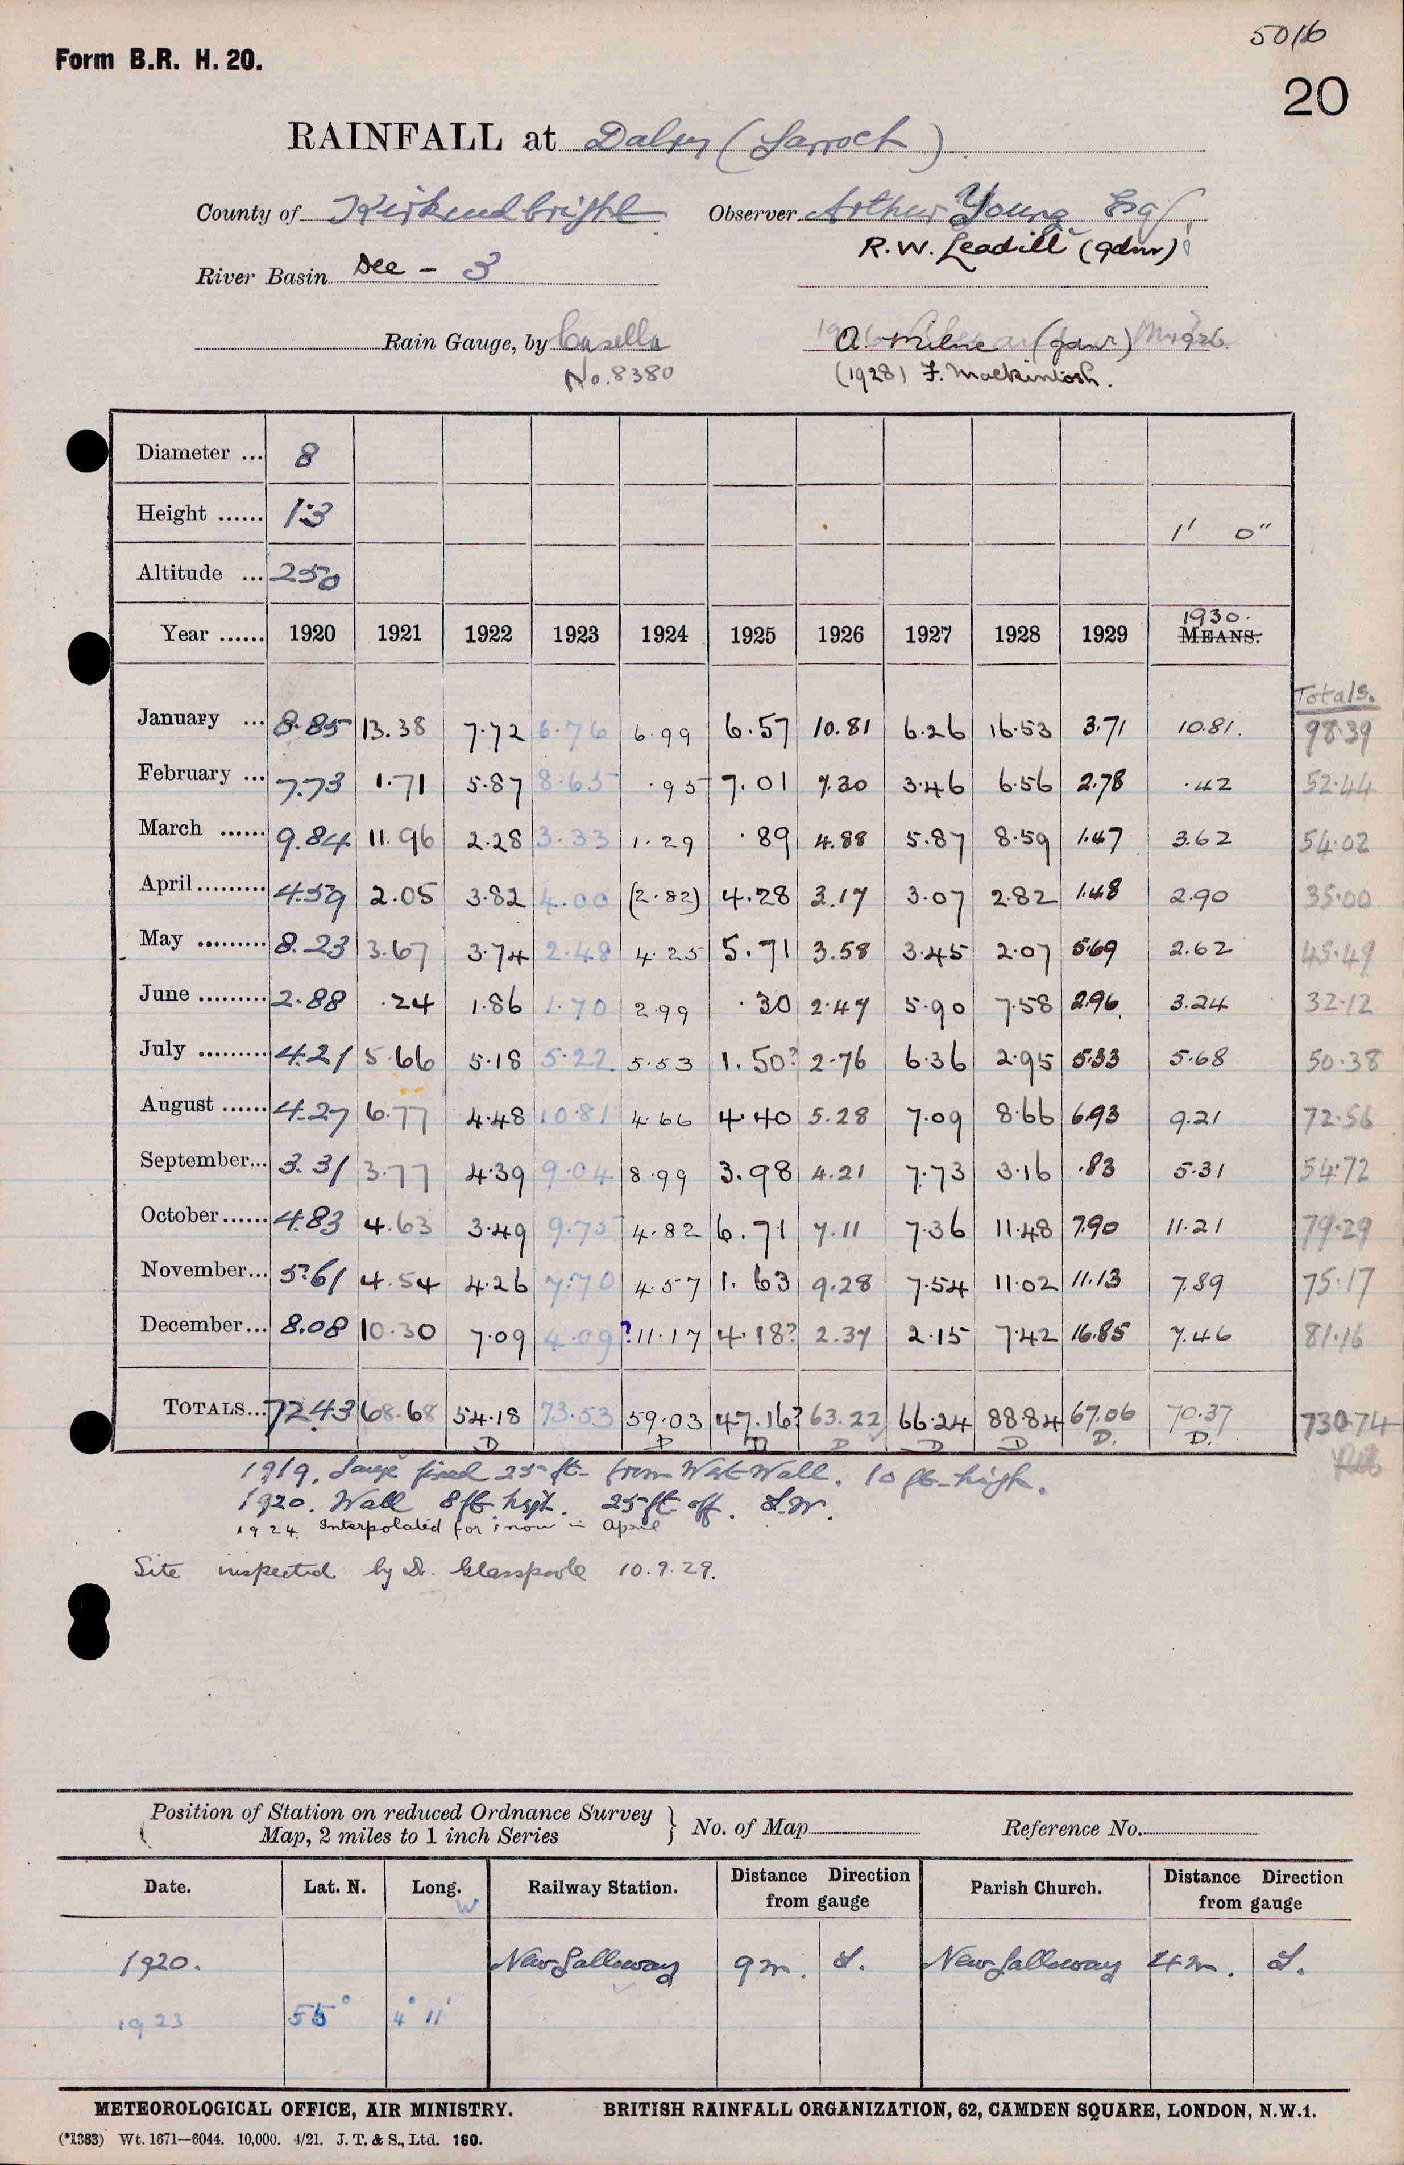 5016
Form B.R. H. 20.
20
RAINFALL at Dalry (Garroch)
County of Kirkcudbright Observer Arthur Young Esq
R.W. Leadill (gdnr)
River Basin Dee - 3
Rain Gauge, by Casella A. Milne (gdnr)
No. 8380 (1928) F. Mackintosh.
Diameter ... 8
Height ...... 1.3 1' 0"
Altitude ... 250
Year ...... 1920 1921 1922 1923 1924 1925 1926 1927 1928 1929 1930. MEANS.
Totals.
January ... 8.85 13.38 7.72 6.76 6.99 6.57 10.81 6.26 16.53 3.71 10.81. 98.39
February ... 7.73 1.71 5.87 8.65 .95 7.01 7.30 3.46 6.56 2.78 .42 52.44
March ...... 9.84 11.96 2.28 3.33 1.29 .89 4.88 5.87 8.59 1.47 3.62 54.02
April ......... 4.59 2.05 3.82 4.00 (2.82) 4.28 3.17 3.07 2.82 1.48 2.90 35.00
May ......... 8.23 3.67 3.74 2.48 4.25 5.71 3.58 3.45 2.07 5.69 2.62 45.49
June ......... 2.88 .24 1.86 1.70 2.99 .30 2.47 5.90 7.58 2.96 3.24 32.12
July ......... 4.21 5.66 5.18 5.22 5.53 1.50? 2.76 6.36 2.95 5.33 5.68 50.38
August ...... 4.27 6.77 4.48 10.81 4.66 4.40 5.28 7.09 8.66 6.93 9.21 72.56
September... 3.31 3.77 4.39 9.04 8.99 3.98 4.21 7.73 3.16 .83 5.31 54.72
October...... 4.83 4.63 3.49 9.75 4.82 6.71 7.11 7.36 11.48 7.90 11.21 79.29
November... 5.61 4.54 4.26 7.70 4.57 1.63 9.28 7.54 11.02 11.13 7.89 75.17
December... 8.08 10.30 7.09 4.09 ?11.17 4.18? 2.37 2.15 7.42 16.85 7.46 81.16
TOTALS... 72.43 68.68 54.18 73.53 59.03 47.16? 63.22 66.24 88.84 67.06 70.37 730.74
D D D D D D D. D.
1919. Gauge fixed 25 ft. from West Wall. 10 ft. high.
1920. Wall 8 ft. high. 25 ft off. S.W.
1924. Interpolated for snow in April
Site inspected by Dr. Glasspoole 10.9.29.
Position of Station on reduced Ordnance Survey
Map, 2 miles to 1 inch Series } No. of Map Reference No.
Date. Lat. N. Long. W Railway Station. Distance Direction from gauge Parish Church. Distance Direction from gauge
1920. New Galloway 9 m. S. New Galloway 4 m. S.
1923 55° 4° 11'
METEOROLOGICAL OFFICE, AIR MINISTRY. BRITISH RAINFALL ORGANIZATION, 62, CAMDEN SQUARE, LONDON, N.W.1.
(*1383) Wt. 1671—6044. 10,000. 4/21. J. T. & S., Ltd. 160.